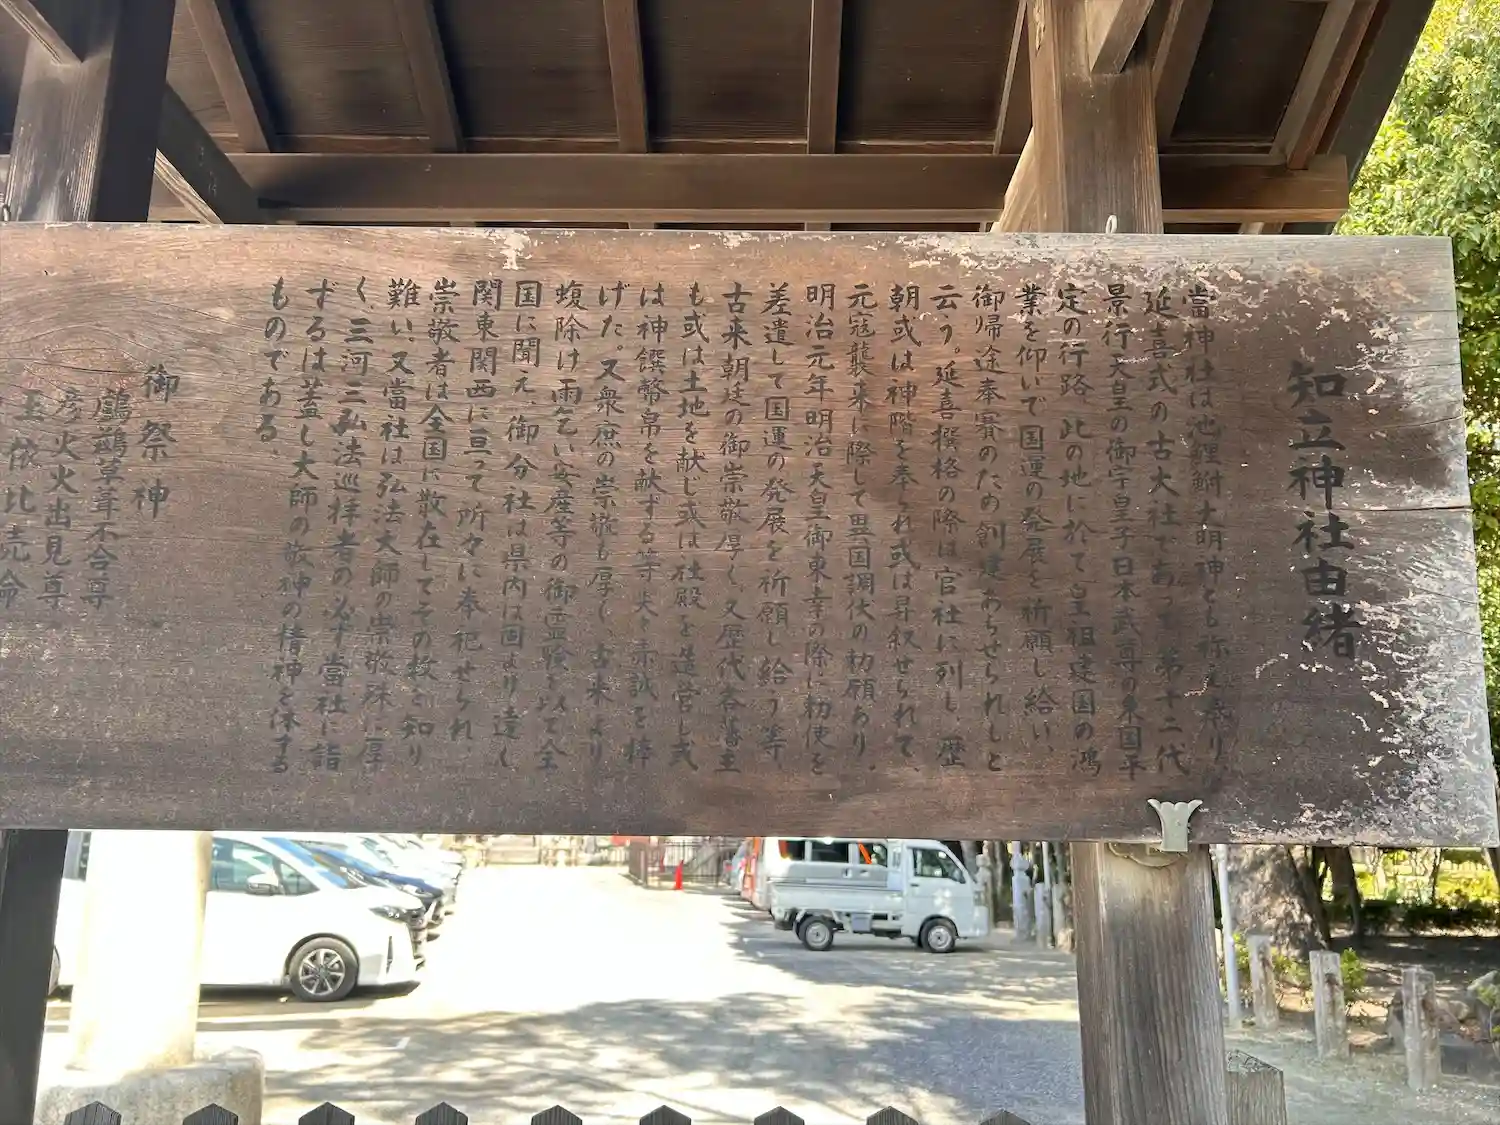 知立神社由緒
當神社は池鯉鮒大明神とも称え奉り
延喜式の古大社であって第十二代
景行天皇の御宇皇子日本武尊の東国平
定の行路、此の地に於て皇祖建国の鴻
業を仰いで国運の発展を祈願し給い、
御帰途奉賽のため創建あらせられしと
云う。延喜撰格の際は官社に列し、歴
朝或は神階を奉られ或は昇叙せられて、
元寇襲来に際して異国調伏の勅願あり。
明治元年明治天皇御東幸の際に勅使を
差遣して国運の発展を祈願し給う等、
古来朝廷の御崇敬厚く、又歴代各藩主
も或は土地を献じ或は社殿を造営し或
は神饌幣帛を献ずる等夫々赤誠を捧
げた。又衆庶の崇敬も厚く、古来より
蝮除け雨乞い安産等の御霊験を以て全
国に聞え、御分社は県内は固より遠く
関東関西に亘って所々に奉祀せられ、
崇敬者は全国に散在してその数を知り
難い、又當社は弘法大師の崇敬殊に厚
く、三河三弘法巡拝者の必ず當社に詣
ずるは蓋し大師の敬神の精神を体する
ものである、
御祭神
鸕鶿草葺不合尊
彦火火出見尊
玉依比売命